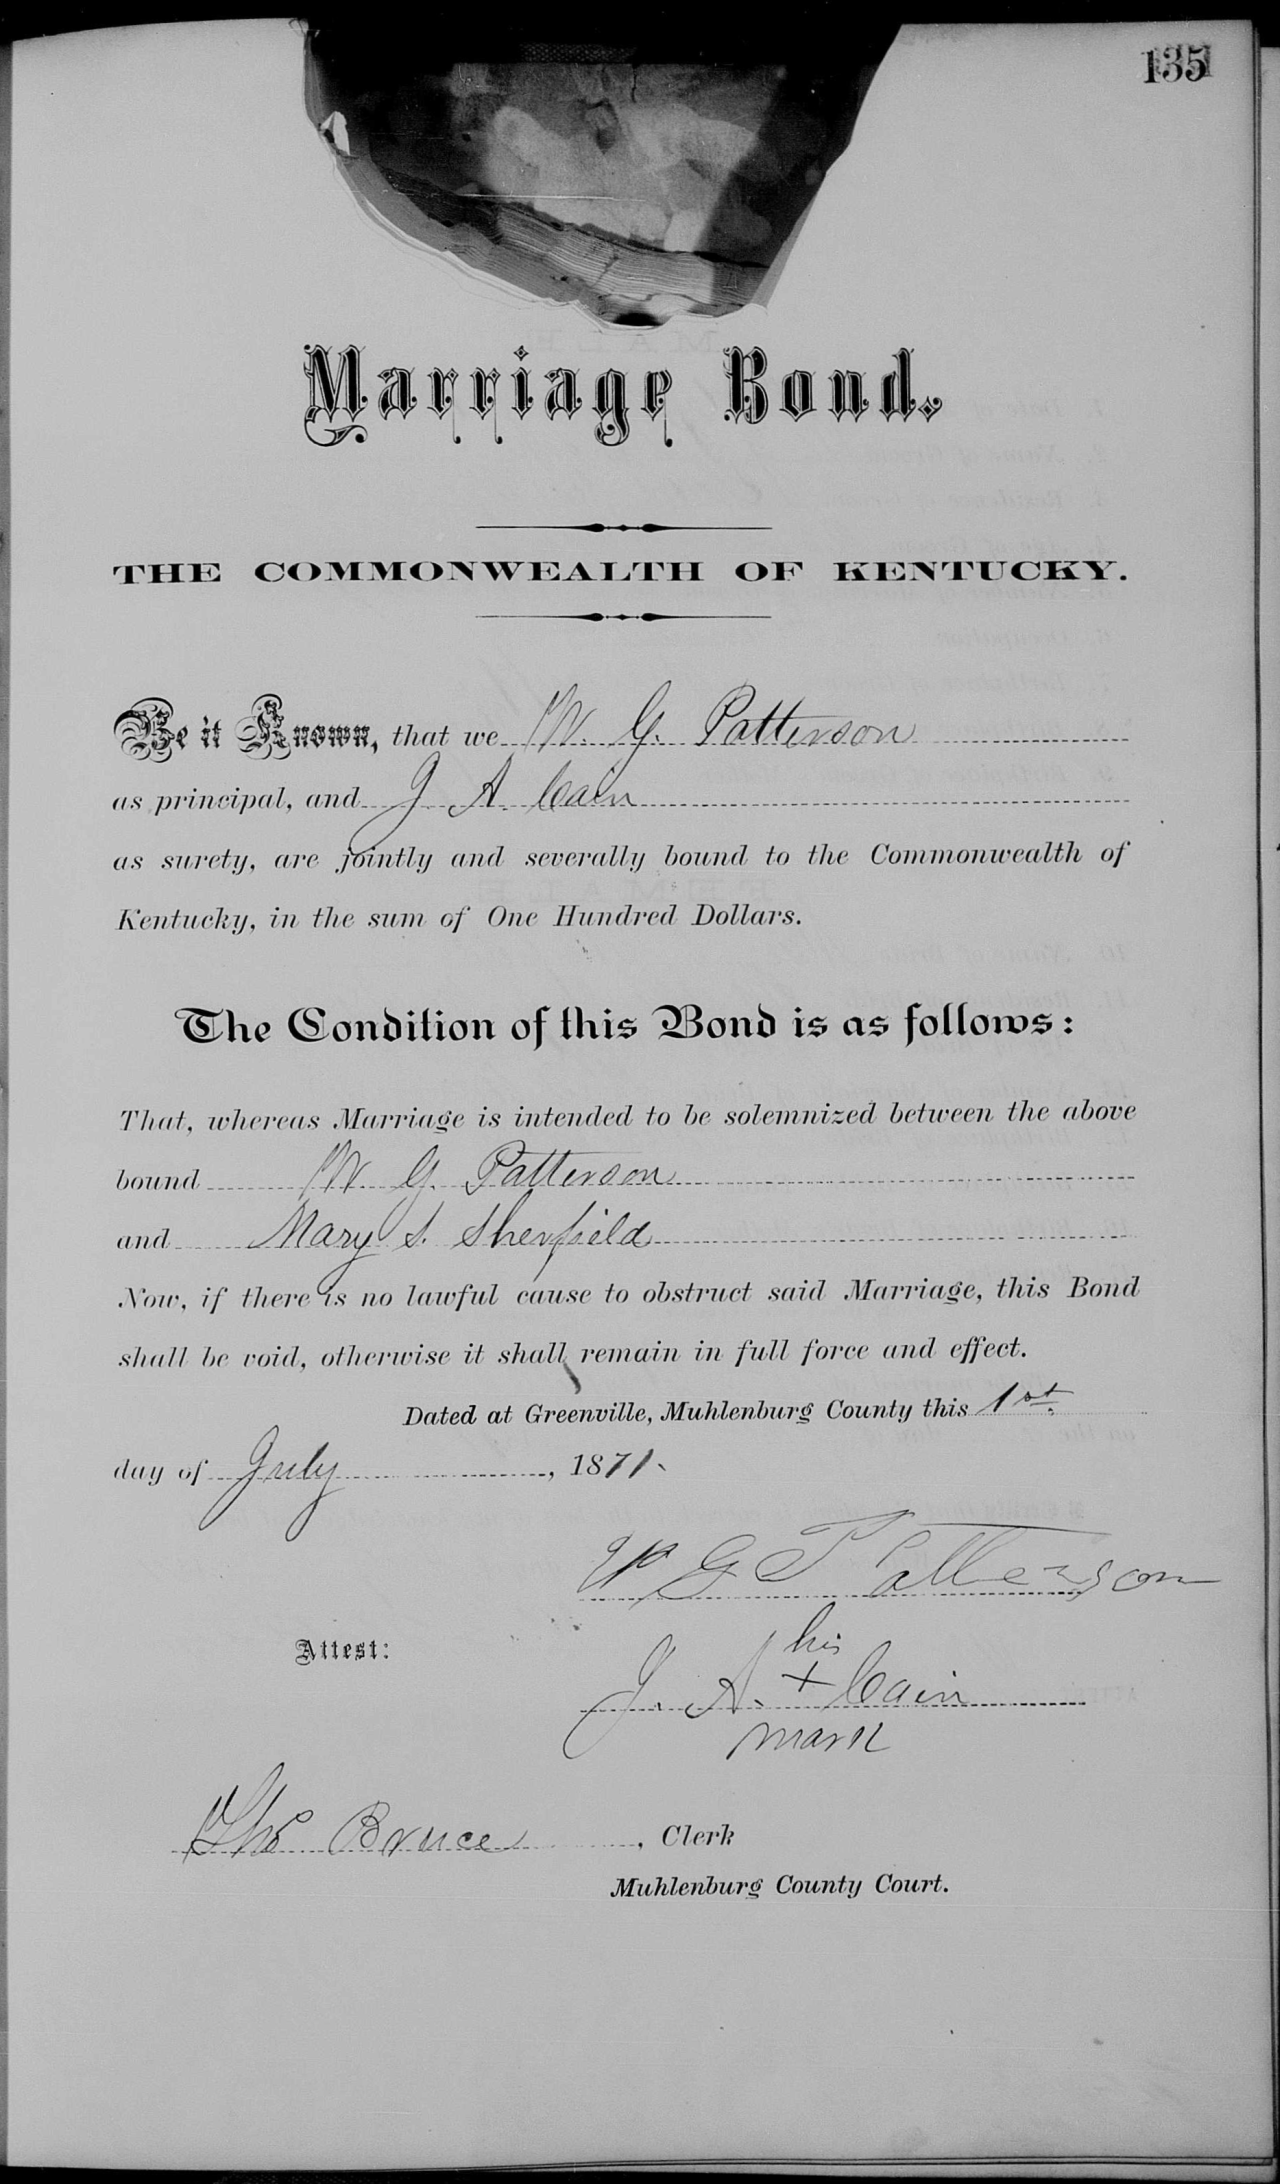 135
Marriage Bond.
THE COMMONWEALTH OF KENTUCKY.
Be it Known, that we W. G. Patterson
as principal, and J. A. Cain
as surety, are jointly and severally bound to the Commonwealth of
Kentucky, in the sum of One Hundred Dollars.
The Condition of this Bond is as follows:
That, whereas Marriage is intended to be solemnized between the above
bound W. G. Patterson
and Mary S. Sherfield
Now, if there is no lawful cause to obstruct said Marriage, this Bond
shall be void, otherwise it shall remain in full force and effect.
Dated at Greenville, Muhlenburg County this 1st.
day of July, 1871.
W G Patterson
his
Attest:
J. A. + Cain
mark
Thos Bruce, Clerk
Muhlenburg County Court.